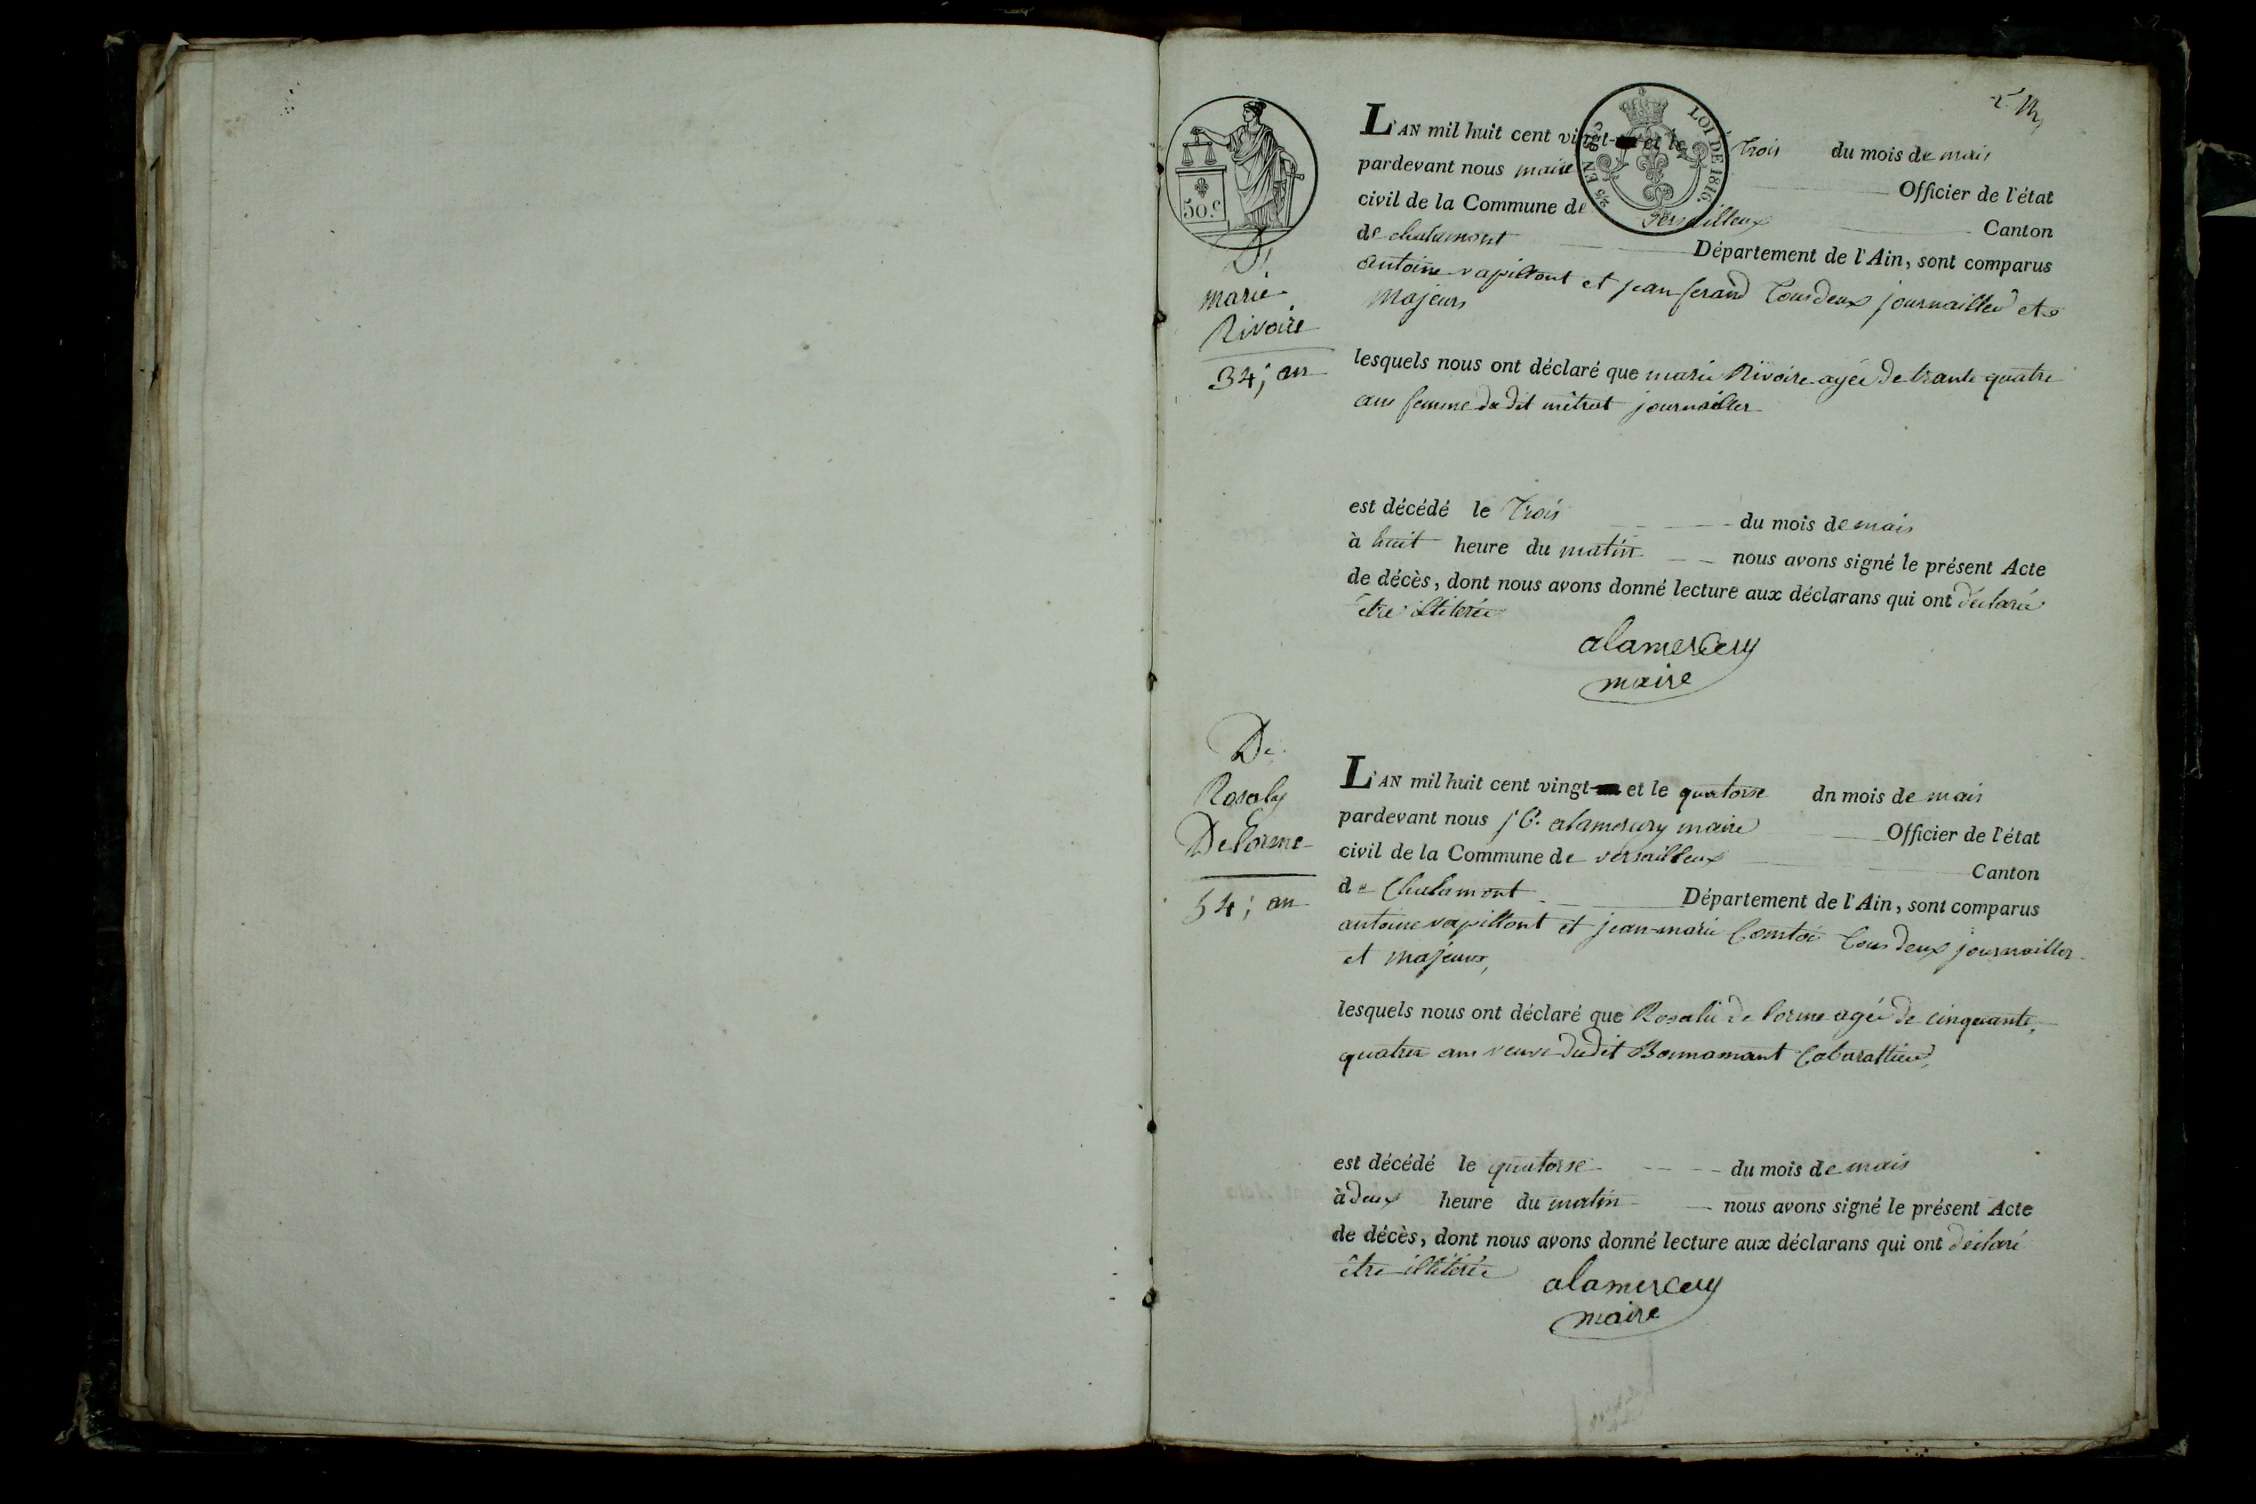 50.c
LOI DE 1816.
EN SUS
De
marie
Rivoire
34; an
L'AN mil huit cent vingt- et le trois du mois de mais
pardevant nous maire Officier de l'état
civil de la Commune de versailleux Canton
de chalamont Département de l'Ain, sont comparus
antoine vapillont et jean ferand tous deux journallier et
majeurs
lesquels nous ont déclaré que marie Rivoire agée de trante quatre
ans femme du dit mitrat journallier
est décédé le trois du mois de mais
à huit heure du matin nous avons signé le présent Acte
de décès, dont nous avons donné lecture aux déclarans qui ont déclaré
être illiterée
alamercery
maire
De
Rosaly
Delorme
54; an
L'AN mil huit cent vingt- et le quatorse dn mois de mais
pardevant nous j C. alamercery maire Officier de l'état
civil de la Commune de versailleux Canton
de Chalamont Département de l'Ain, sont comparus
antoine vapillont et jean-marie Comtoi tous deux journallier
et majeurs,
lesquels nous ont déclaré que Rosalie de lorme agée de cinquante
quatres ans veuve dudit Bonnamant Cabarattier,
est décédé le quatorse du mois de mais
à deux heure du matin nous avons signé le présent Acte
de décès, dont nous avons donné lecture aux déclarans qui ont déclaré
être illitérée
alamercery
maire